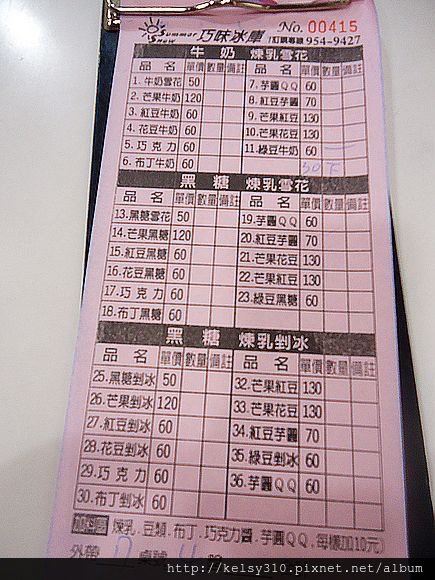 Summer Snow 巧味冰庫 No. 00415
訂購專線 954-9427
牛奶 煉乳雪花
品名 單價 數量 備註 品名 單價 數量 備註
1. 牛奶雪花 50 7. 芋圓QQ 60
2. 芒果牛奶 120 8. 紅豆芋圓 70
3. 紅豆牛奶 60 9. 芒果紅豆 130
4. 花豆牛奶 60 10. 芒果花豆 130
5. 巧克力 60 11. 綠豆牛奶 60
6. 布丁牛奶 60
黑糖 煉乳雪花
品名 單價 數量 備註 品名 單價 數量 備註
13. 黑糖雪花 50 19. 芋圓QQ 60
14. 芒果黑糖 120 20. 紅豆芋圓 70
15. 紅豆黑糖 60 21. 芒果花豆 130
16. 花豆黑糖 60 22. 芒果紅豆 130
17. 巧克力 60 23. 綠豆黑糖 60
18. 布丁黑糖 60
黑糖 煉乳剉冰
品名 單價 數量 備註 品名 單價 數量 備註
25. 黑糖剉冰 50 32. 芒果紅豆 130
26. 芒果剉冰 120 33. 芒果花豆 130
27. 紅豆剉冰 60 34. 紅豆芋圓 70
28. 花豆剉冰 60 35. 綠豆剉冰 60
29. 巧克力 60 36. 芋圓QQ 60
30. 布丁剉冰 60
加料區 (煉乳.豆類.布丁.巧克力醬.芋圓QQ.每樣加10元)
外帶 桌號
http://kelsy310.pixnet.net/album